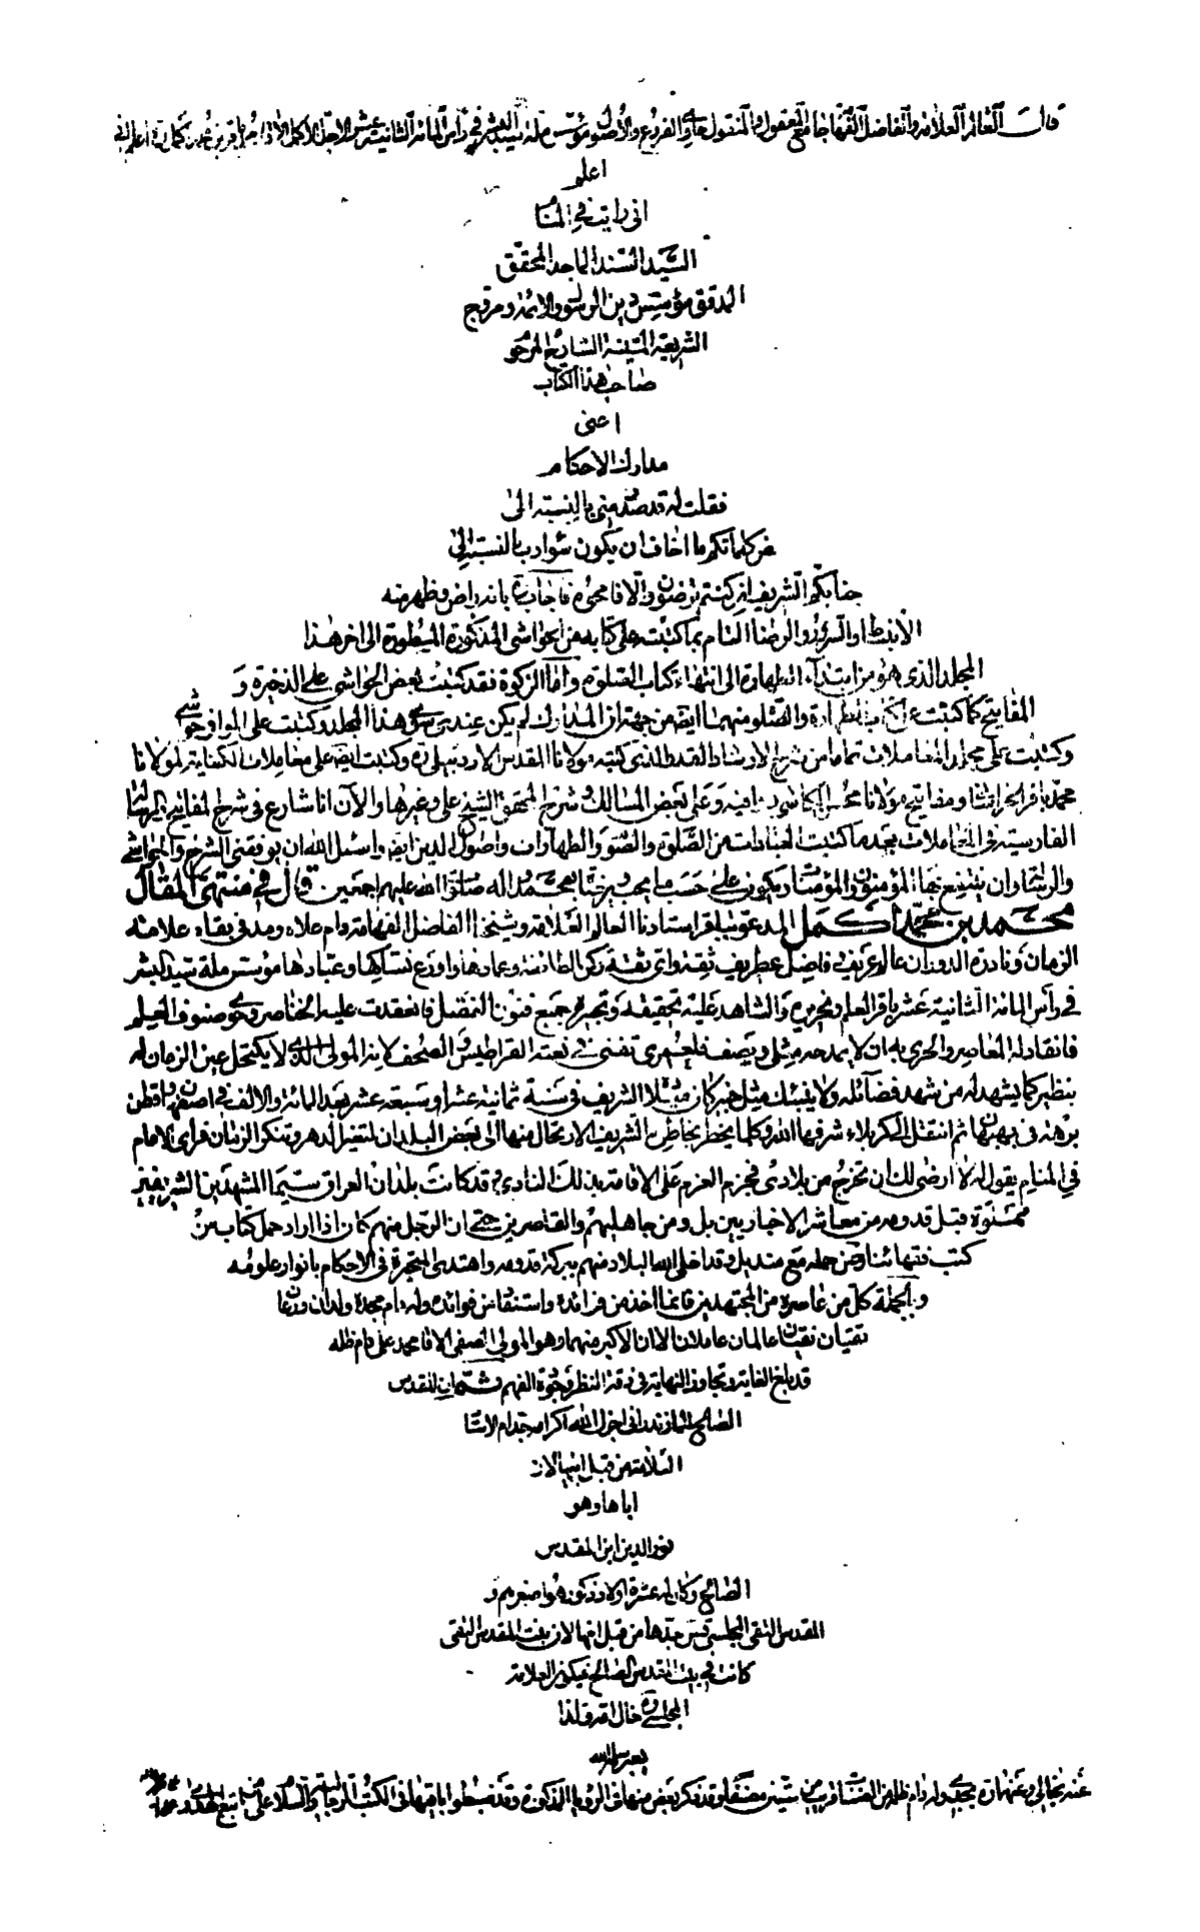 قال العالم العلامة والفاضل الفهامة جامع المعقول والمنقول حاوي الفروع والأصول مؤسس ملة سيد البشر في رأس المائة الثانية عشر الأجل الأكمل
اعلم
اني رايت في المنام
السيد السند الماجد المحقق
المدقق مؤسس دين الرسول والائمة ومروج
الشريعة المتينة الشارع المرحوم
صاحب هذا الكتاب
اعنى
مدارك الاحكام
فقلت له قد صدر مني بالنسبة الى
بعض كلماتكم ما اخاف ان يكون سوء ادب بالنسبة الى
جنابكم الشريف انتم ترضون والا فامحوه فاجاب بانه راض وظهر منه
الانبساط والسرور والرضا التام بما كتبت على كتابه من الحواشي المذكورة المسطورة الى اخر هذا
المجلد الذي هو من ابتداء الطهارة الى انتهاء كتاب الصلوة واما الزكوة فقد كتبت بعض الحواشي على الذخيرة و
المفاتيح كما كتبت على كتاب الطهارة والصلوة منهما ايضا من جهة ان المدارك لم يكن عندي سوى هذا المجلد وكتبت على الوافي حواشي
وكتبت على مجلد المعاملات تماما من شرح الارشاد الذي كتبه مولانا المقدس الاردبيلي ره وكتبت ايضا على معاملات الكفاية لمولانا
محمد باقر الخراساني ومفاتيح مولانا محسن الكاشي ووافيه وعلى بعض المسالك وشرح المحقق الشيخ علي وغيرها والآن انا شارع في شرح المفاتيح
الفارسية في المعاملات بعد ما كتبت العبادات من الصلوة والصوم والطهارات واصول الدين ايضا واسئل الله ان يوفقني الشرح والحواشي
والرسائل وان ينتفع بها المؤمنون والمؤمنات ويكون على حسب ما يحب ربنا بمحمد وآله صلوات الله عليهم اجمعين قال في منتهى المقال
محمد بن محمد اكمل المدعو بباقر استادنا العالم العلامة وشيخنا الفاضل الفهامة دام علاه ومد في بقاه علامة
الزمان ونادرة الدوران عالم عريف وفاضل غطريف ثقة واي ثقة ركن الطائفة وعمادها واورع نساكها وعبادها مؤسس ملة سيد البشر
في رأس المائة الثانية عشر باقر العلم ونحريره والشاهد عليه تحقيقه وتحبيره جمع فنون الفضل فانعقدت عليه الخناصر وحوى صنوف العلم
فانقاد له المعاصر والحري به ان لا يمدحه مثلي ويصف فلعمري تفنى في نعته القراطيس والصحف لانه المولى الذي لا يكتحل عين الزمان له
بنظير كما يشهد له من شهد فضائله ولا ينبئك مثل خبير كان ميلاده الشريف في سنة ثمانية عشر او سبعة عشر بعد المائة والالف في اصفهان وقطن
برهة في بهبهان ثم انتقل الى كربلاء شرفها الله وكلما يخطر بخاطره الشريف الارتحال منها الى بعض البلدان لتغير الدهر وتنكر الزمان فرأى الامام
في المنام يقول له لا ارضى لك ان تخرج من بلادي فجزم العزم على الاقامة بذلك النادي وقد كانت بلدان العراق سيما المشهدين الشريفين
مملوة قبل قدومه من معاشر الاخباريين بل ومن جاهليهم والقاصرين حتى ان الرجل منهم كان اذا اراد حمل كتاب من
كتب فقهائنا رض حمله مع منديل وقد اخلى الله البلاد منهم ببركة قدومه واهتدى المتحيرة في الاحكام بانوار علومه
وبالجملة كل من عاصره من المجتهدين فانما اخذ من فرائده واستفاد من فوائده وله دام مجده ولدان ورعان
تقيان نقيان عالمان عاملان الا ان الاكبر منهما وهو المولى الصفي الاقا محمد علي دام ظله
قد بلغ الغاية وتجاوز النهاية في دقة النظر وجودة الفهم
الصالح المازندراني اجزل الله اكرامه جد ام الاستاد
العلامة من قبل ابيها لان
اباها وهو
نور الدين ابن المقدس
الصالح وكان له عشرة اولاد ذكور هو اصغرهم و
المقدس التقي المجلسي قدس جدها من قبل امها لان بنت المقدس التقي
كانت في بيت المقدس الصالح فيكون العلامة
المجلسي ره خال امه فلذا
يعبر سلمه الله
عنه بخالي وعنهما ره بجدي وله دام ظله من المصنفات قريب من ستين مصنفا وقد ذكر بعض منها في الرؤيا المذكورة وقد ضبطوا باقيها في الكتب الرجالية والسلام على من اتبع الهدى